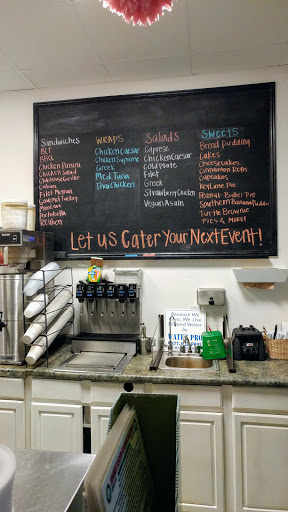 Sandwiches
BLT
BBQ
Chicken Panini
Chicken Salad
Chophouse Griller
Cuban
Filet Mignon
Gourmet Turkey
Portobella
Reuben
WRAPS
Chicken Caesar
Chicken Supreme
Greek
Med. Tuna
Thai Chicken
Salads
Caprese
Chicken Caesar
Cold Plate
Filet
Greek
Strawberry Chicken
Vegan Asain
SWEETS
Bread Pudding
Cakes
Cheesecakes
Cinnamon Rolls
Cupcakes
Key Lime Pie
Peanut Butter Pie
Southern Banana Puddin
Turtle Brownie
Pies & More!
LET US CATER YOUR NEXT EVENT!
Because We
Care, We Use
Filtered Water
by
WATER PRO